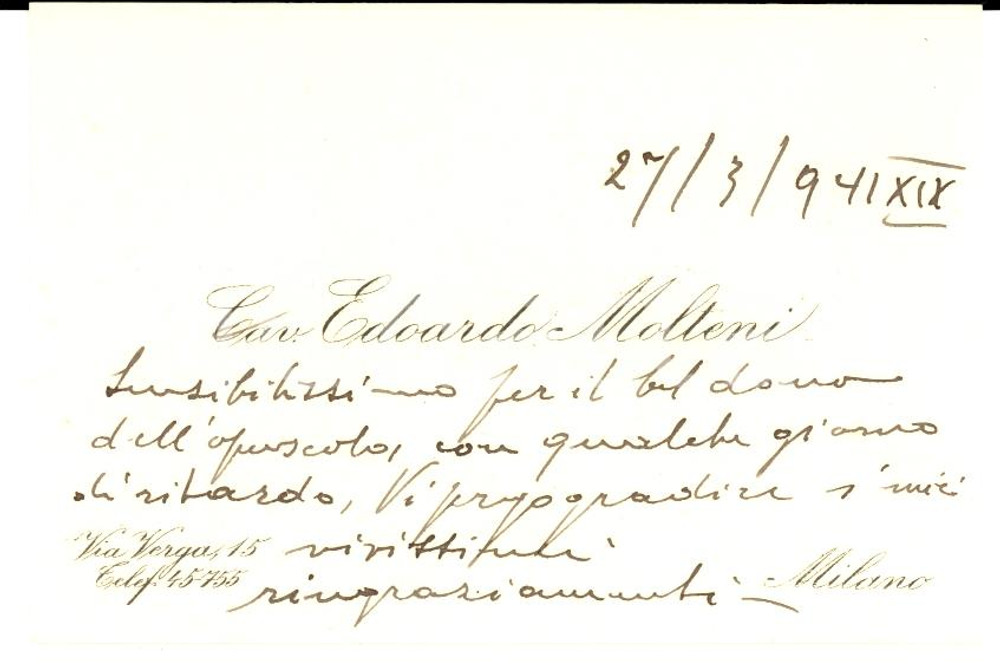 27/3/941 XIX
Cav. Edoardo Molteni
Sensibilissimo per il bel dono
dell'opuscolo, con qualche giorno
di ritardo, Vi prego gradire i miei
Via Verga, 15 vivissimi
Telef. 45-755 ringraziamenti - Milano